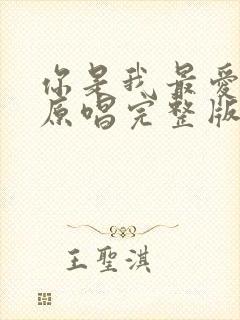 你是我最爱
原唱完整版
王聖淇